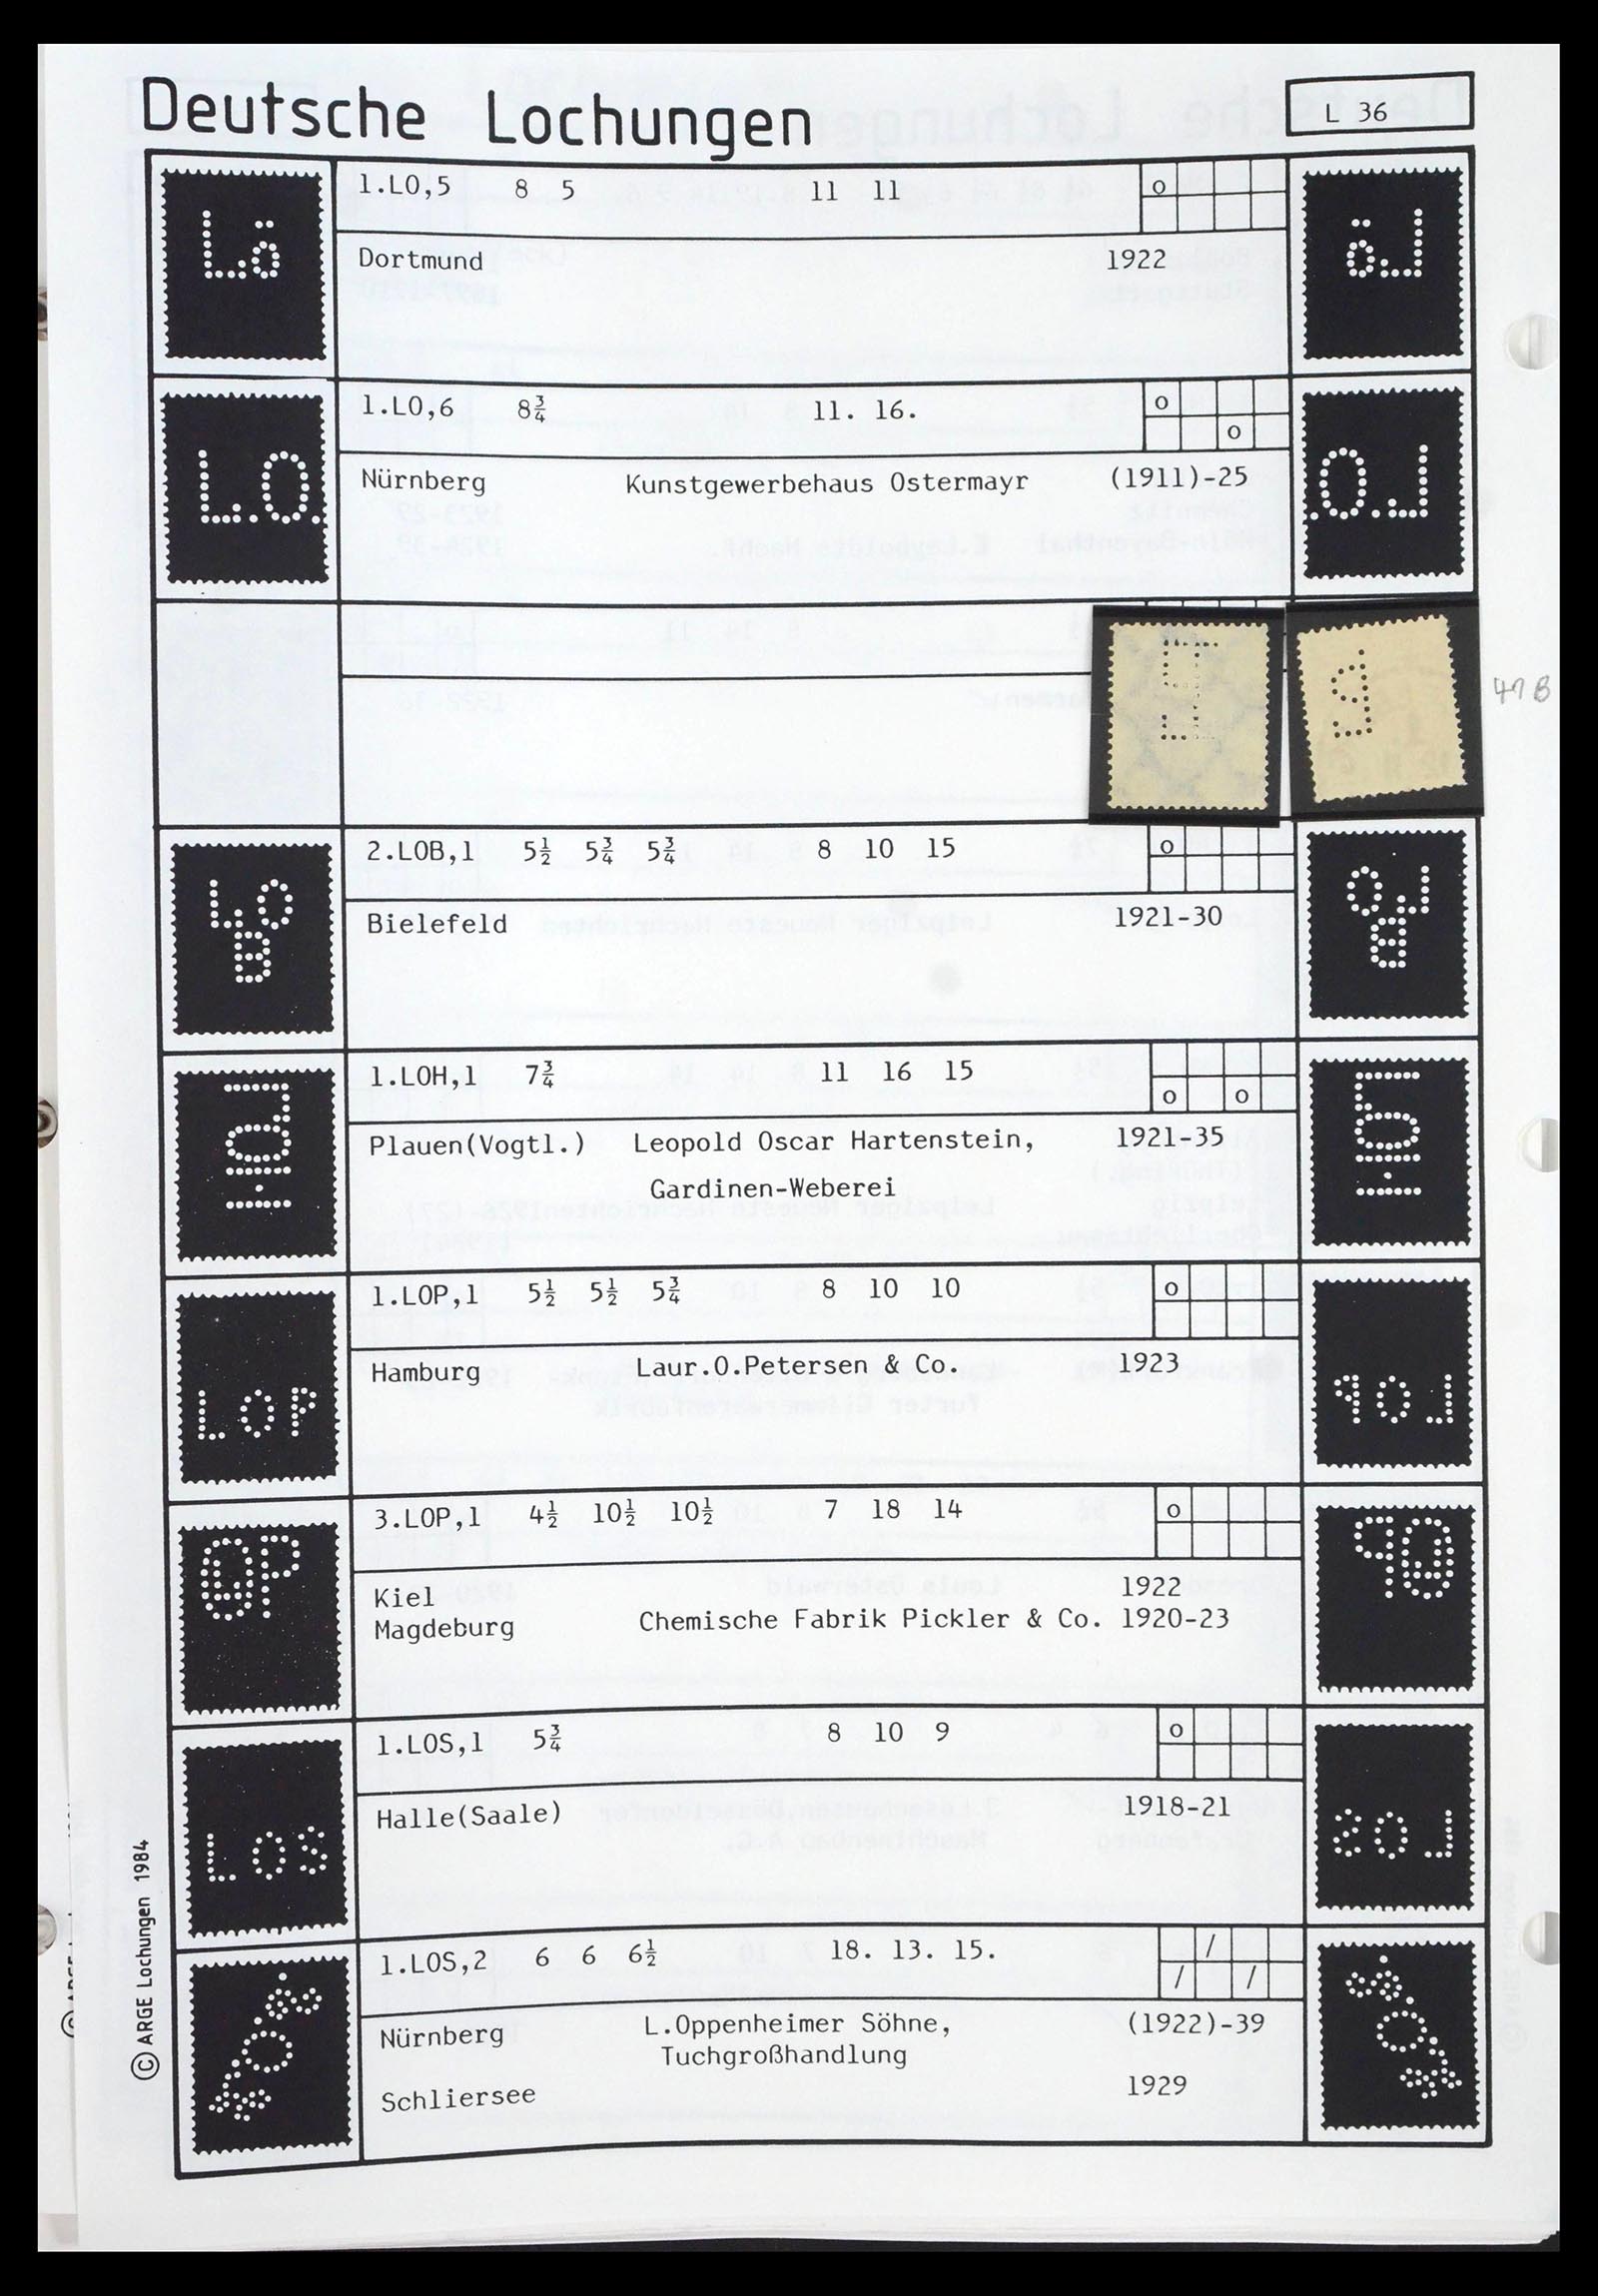 Deutsche Lochungen
L 36
1.LO,5 8 5 11 11 o
Lö
Dortmund 1922
1.LO,6 8¾ 11. 16. o
o
L.O.
Nürnberg Kunstgewerbehaus Ostermayr (1911)-25
47 B
2.LOB,1 5½ 5¾ 5¾ 8 10 15 o
LO
B
Bielefeld 1921-30
1.LOH,1 7¾ 11 16 15
o o
LOH
Plauen(Vogtl.) Leopold Oscar Hartenstein, 1921-35
Gardinen-Weberei
1.LOP,1 5½ 5½ 5¾ 8 10 10 o
LOP
Hamburg Laur.O.Petersen & Co. 1923
3.LOP,1 4½ 10½ 10½ 7 18 14 o
Kiel 1922
Magdeburg Chemische Fabrik Pickler & Co. 1920-23
1.LOS,1 5¾ 8 10 9 o
LOS
Halle(Saale) 1918-21
1.LOS,2 6 6 6½ 18. 13. 15. /
/ /
Nürnberg L.Oppenheimer Söhne, (1922)-39
Tuchgroßhandlung
Schliersee 1929
© ARGE Lochungen 1984